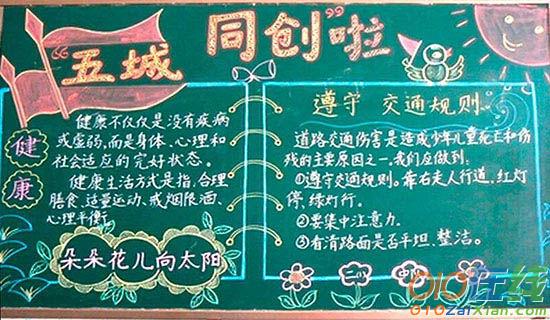 “五城同创”啦
健康
健康不仅仅是没有疾病
或虚弱,而是身体、心理和
社会适应的完好状态。
健康生活方式是指,合理
膳食、适量运动、戒烟限酒、
心理平衡。
朵朵花儿向太阳
遵守 交通规则、
道路交通伤害是造成少年儿童死亡和伤
残的主要原因之一,我们应做到:
①遵守交通规则。靠右走人行道,红灯
停,绿灯行。
②要集中注意力。
③看清路面是否平坦、整洁。
010在线
010zaixian.com